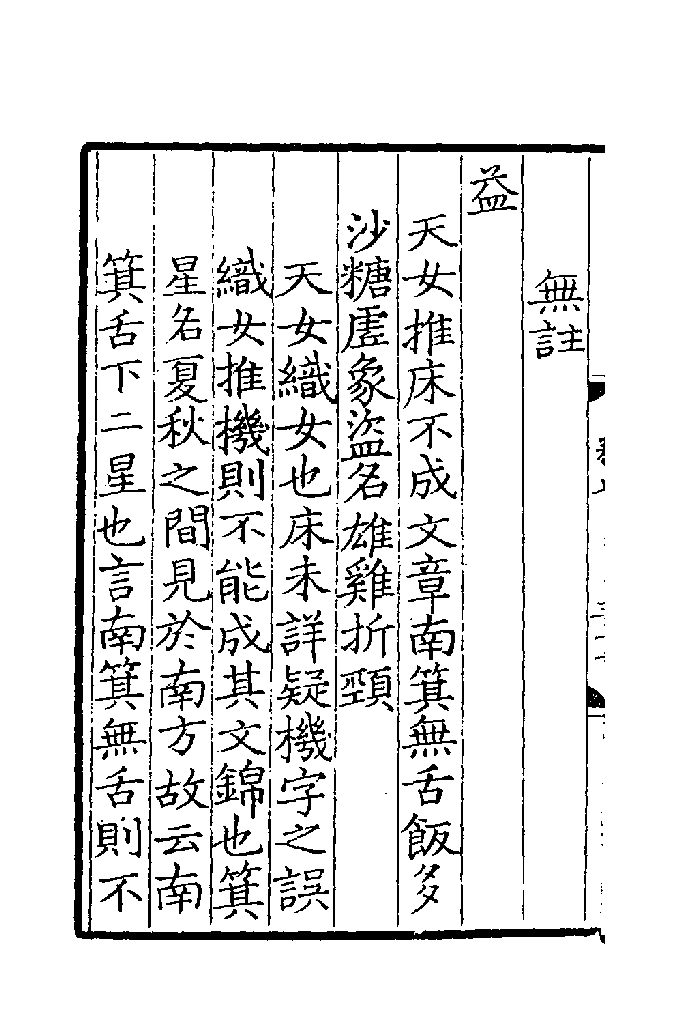 無註
益
天女推床不成文章南箕無舌飯多
沙糖虛象盜名雄雞折頸
天女織女也床未詳疑機字之誤
織女推機則不能成其文錦也箕
星名夏秋之間見於南方故云南
箕舌下二星也言南箕無舌則不